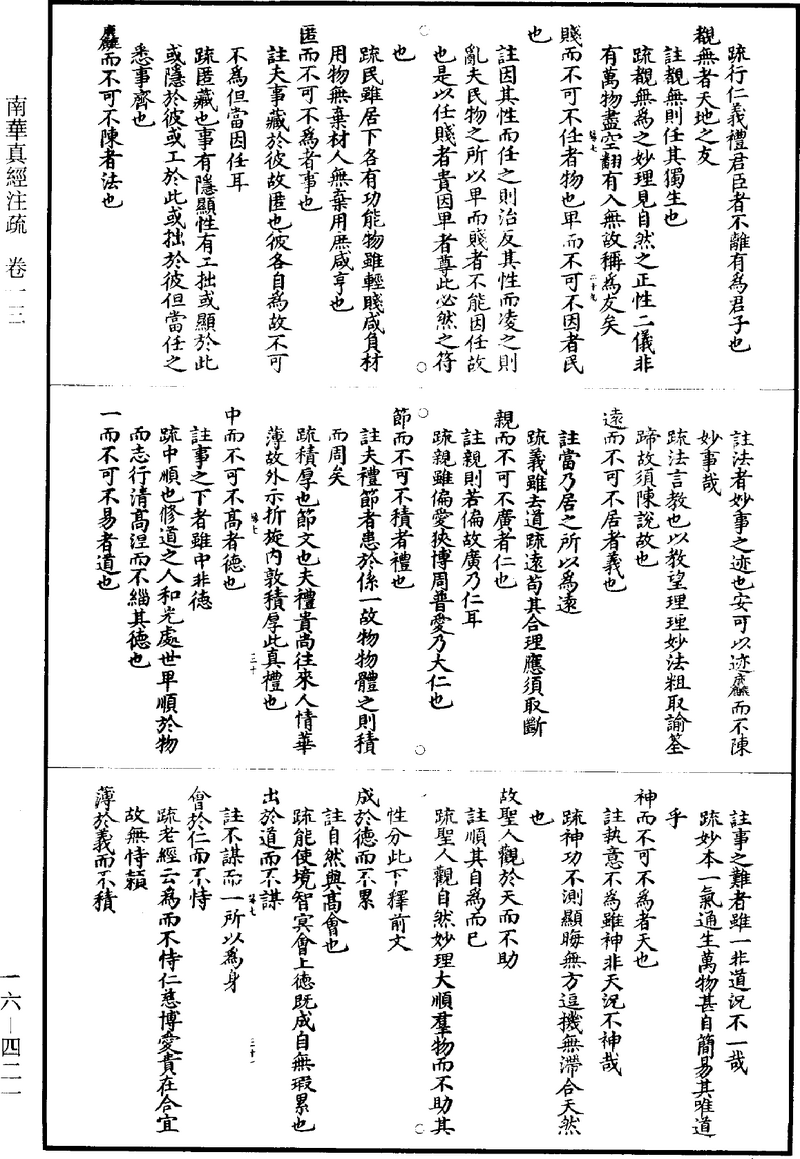 南華真經注疏　卷一三
一六—四二一
疏行仁義禮君臣者不離有爲君子也
覩無者天地之友
註覩無則任其獨生也
疏覩無爲之妙理見自然之正性二儀非
有萬物盡空翻有入無故稱爲友矣
賤而不可不任者物也卑而不可不因者民
也
註因其性而任之則治反其性而凌之則
亂夫民物之所以卑而賤者不能因任故
也是以任賤者貴因卑者尊此必然之符
也
疏民雖居下各有功能物雖輕賤咸負材
用物無棄材人無棄用庶咸亨也
匿而不可不爲者事也
註夫事藏於彼故匿也彼各自爲故不可
不爲但當因任耳
疏匿藏也事有隱顯性有工拙或顯於此
或隱於彼或工於此或拙於彼但當任之
悉事齊也
麤而不可不陳者法也
註法者妙事之迹也安可以迹麤而不陳
妙事哉
疏法言教也以教望理理妙法粗取諭筌
蹄故須陳說故也
遠而不可不居者義也
註當乃居之所以爲遠
疏義雖去道疏遠苟其合理應須取斷
親而不可不廣者仁也
註親則若偏故廣乃仁耳
疏親雖偏愛狹博周普愛乃大仁也
節而不可不積者禮也
註夫禮節者患於係一故物物體之則積
而周矣
疏積厚也節文也夫禮貴尚往來人情華
薄故外示折旋內敦積厚此真禮也
中而不可不高者德也
註事之下者雖中非德
疏中順也修道之人和光處世卑順於物
而志行清高涅而不緇其德也
一而不可不易者道也
註事之難者雖一非道況不一哉
疏妙本一氣通生萬物甚自簡易其唯道
乎
神而不可不爲者天也
註執意不爲雖神非天況不神哉
疏神功不測顯晦無方逗機無滯合天然
也
故聖人觀於天而不助
註順其自爲而已
疏聖人觀自然妙理大順羣物而不助其
性分此下釋前文
成於德而不累
註自然與高會也
疏能使境智冥會上德既成自無瑕累也
出於道而不謀
註不謀而一所以爲身
會於仁而不恃
疏老經云爲而不恃仁慈博愛貴在合宜
故無恃賴
薄於義而不積